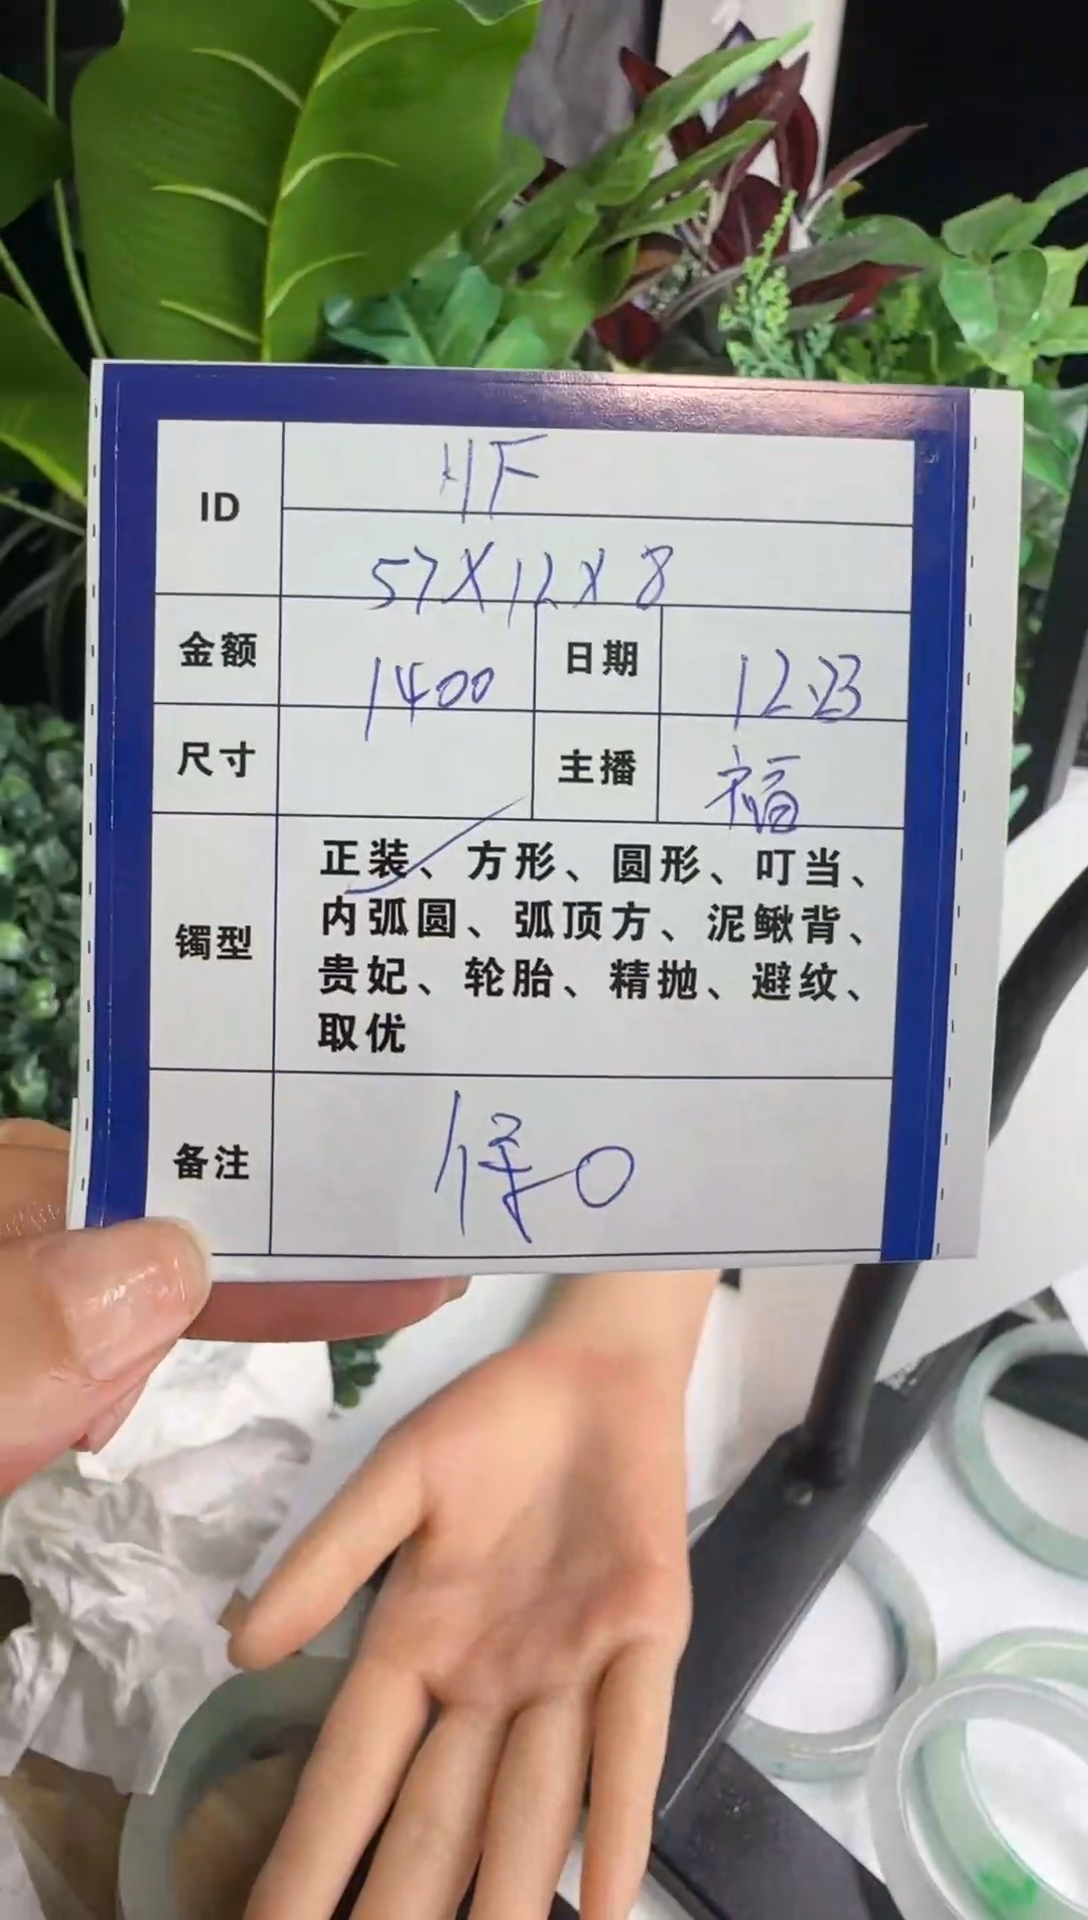 ID
HF
57X12X8
金额 1400 日期 12.23
尺寸 主播 福
镯型
正装、方形、圆形、叮当、
内弧圆、弧顶方、泥鳅背、
贵妃、轮胎、精抛、避纹、
取优
备注